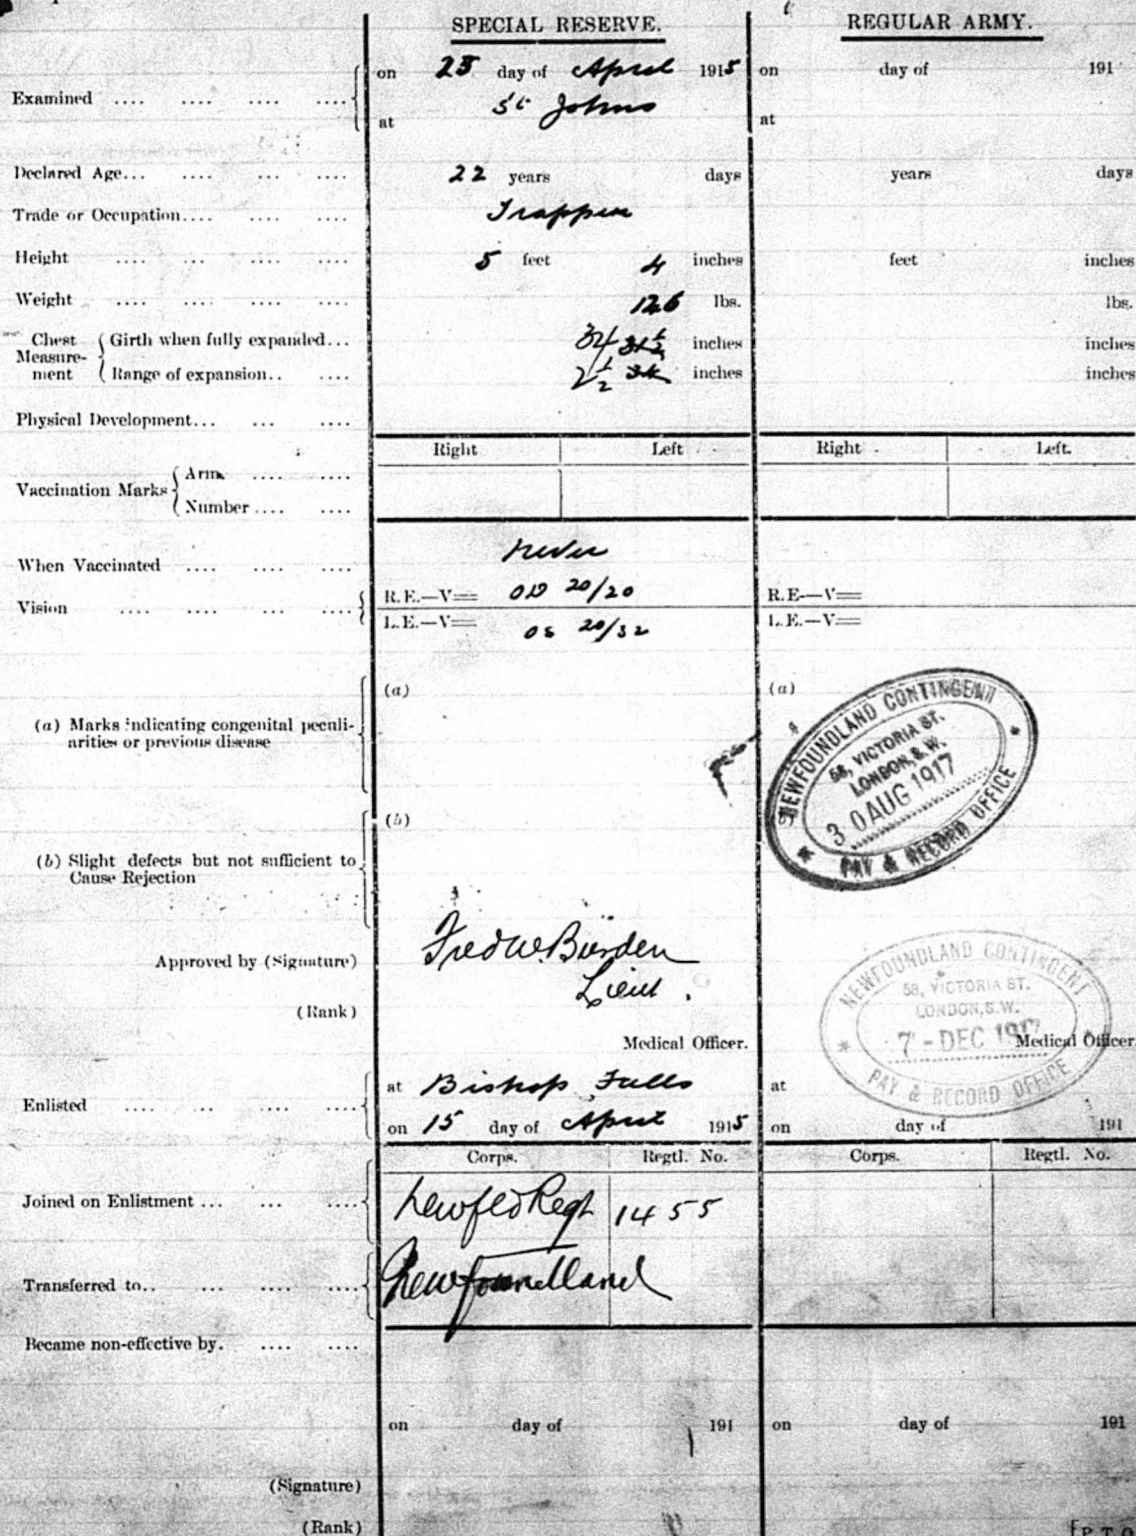 SPECIAL RESERVE. REGULAR ARMY.
Examined .... .... .... .... on 23 day of April 1915 on day of 191
at St Johns at
Declared Age... .... ... .... 22 years days years days
Trade or Occupation.... .... .... Trapper
Height .... ... .... .... 5 feet 4 inches feet inches
Weight .... .... .... .... 126 lbs. lbs.
Chest Measure-ment Girth when fully expanded... 34 31½ inches inches
Range of expansion.. .... 2½ 34 inches inches
Physical Development... ... ....
Right Left Right Left.
Vaccination Marks Arm .... ....
Number .... ....
When Vaccinated .... .... .... never
Vision .... .... .... .... R.E.—V= OD 20/20 R.E—V=
L.E.—V= OS 20/32 L.E.—V=
(a) Marks indicating congenital peculi-
arities or previous disease
(a) (a)
NEWFOUNDLAND CONTINGENT
58, VICTORIA ST.
LONDON, S.W.
30 AUG 1917
PAY & RECORD OFFICE
(b) Slight defects but not sufficient to
Cause Rejection
(b)
Approved by (Signature) Fred W. Burden
(Rank) Lieut.
Medical Officer. Medical Officer
NEWFOUNDLAND CONTINGENT
58, VICTORIA ST.
LONDON, S.W.
7 - DEC 1917
PAY & RECORD OFFICE
Enlisted .... ... .... .... at Bishop Falls at
on 15 day of April 1915 on day of 191
Corps. Regtl. No. Corps. Regtl. No.
Joined on Enlistment ... ... .... Newfld Regt 1455
Transferred to.. ... .... .... Newfoundland
Became non-effective by. .... ....
on day of 191 on day of 191
(Signature)
(Rank)
[P.T.O